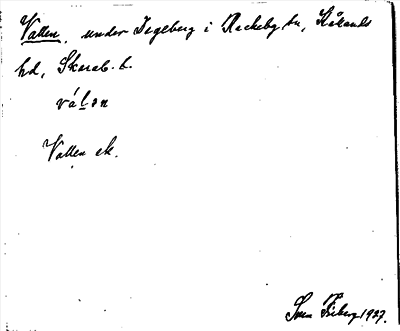 Vallen, under Dageberg i Rackeby sn, Kålands
hd, Skarab. l.
válən
Vallen ek.
Sven Friberg 1927.